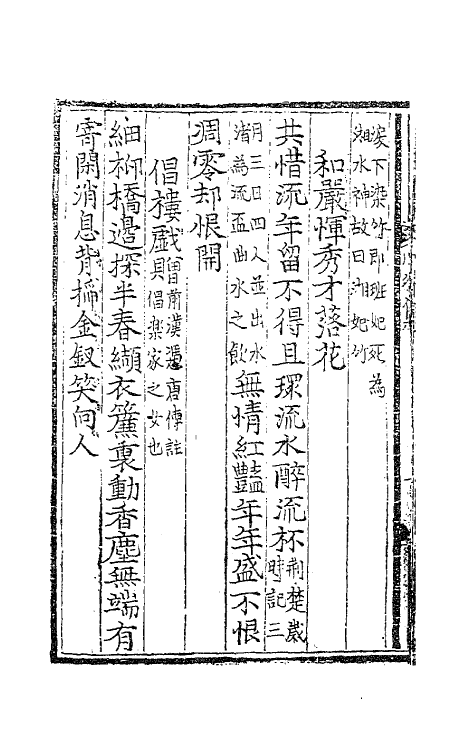 淚下染竹即班妃死為
湘水神故曰湘妃竹
和嚴惲秀才落花
共惜流年留不得且環流水醉流杯荊楚歲時記三
月三日四人並出水渚為流盃曲水之飲無情紅艷年年盛不恨
凋零却恨開
倡樓戲前漢憑唐傳註具倡樂家之女也
細柳橋邊探半春纈衣簾裏動香塵無端有
寄閑消息背插金釵笑向人